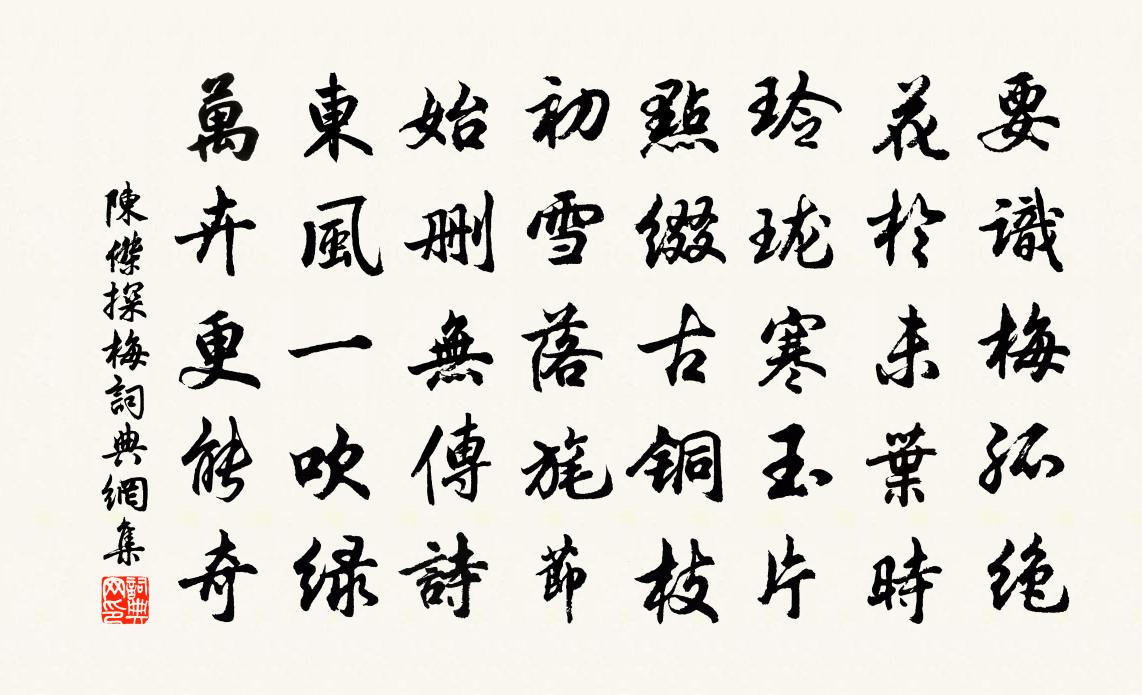 要識梅孤絶
花於未葉時
玲珑寒玉片
點綴古銅枝
初雪落旄節
始删無傳詩
東風一吹緑
萬卉更能奇
陳傑探梅詞典網集
詞典网印